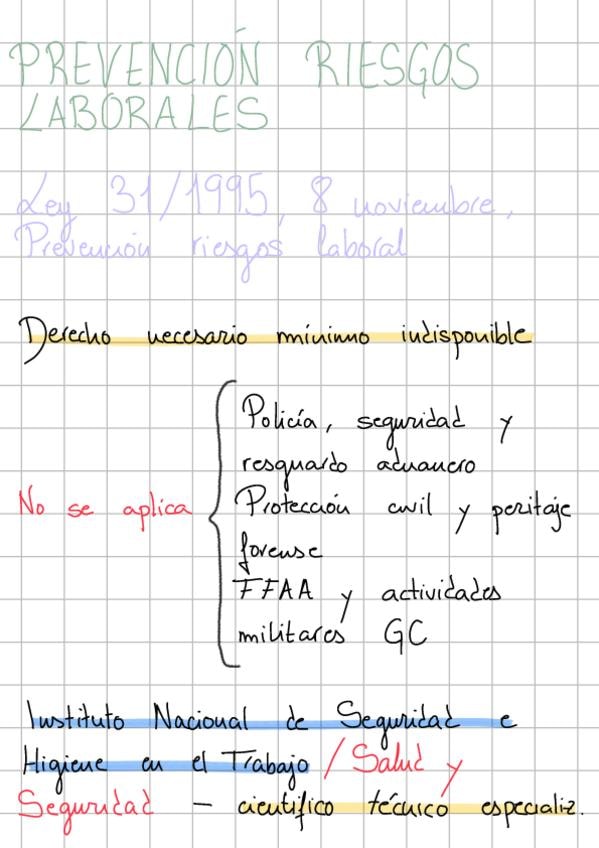 PREVENCIÓN RIESGOS
LABORALES
Ley 31/1995, 8 noviembre,
Prevención riesgos laboral
Derecho necesario mínimo indisponible
Policía, seguridad y
resguardo aduanero
No se aplica
Protección civil y peritaje
forense
FFAA y actividades
militares GC
Instituto Nacional de Seguridad e
Higiene en el Trabajo / Salud y
Seguridad – científico técnico especializ.